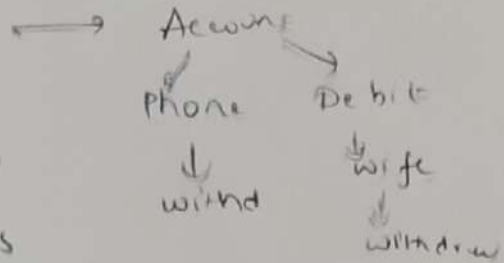 Account
Phone Debit
withd wife
withdraw
s